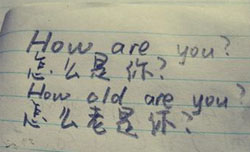 How are you?
怎么是你?
How old are you?
怎么老是你?